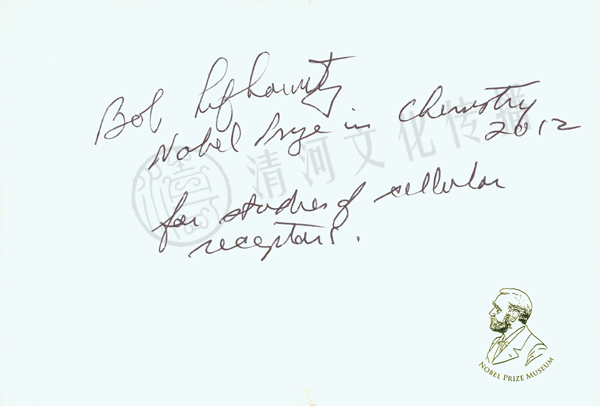 Bob Lefkowitz
Nobel Prize in Chemistry
2012
for studies of cellular
receptors.
清河文化传播
NOBEL PRIZE MUSEUM